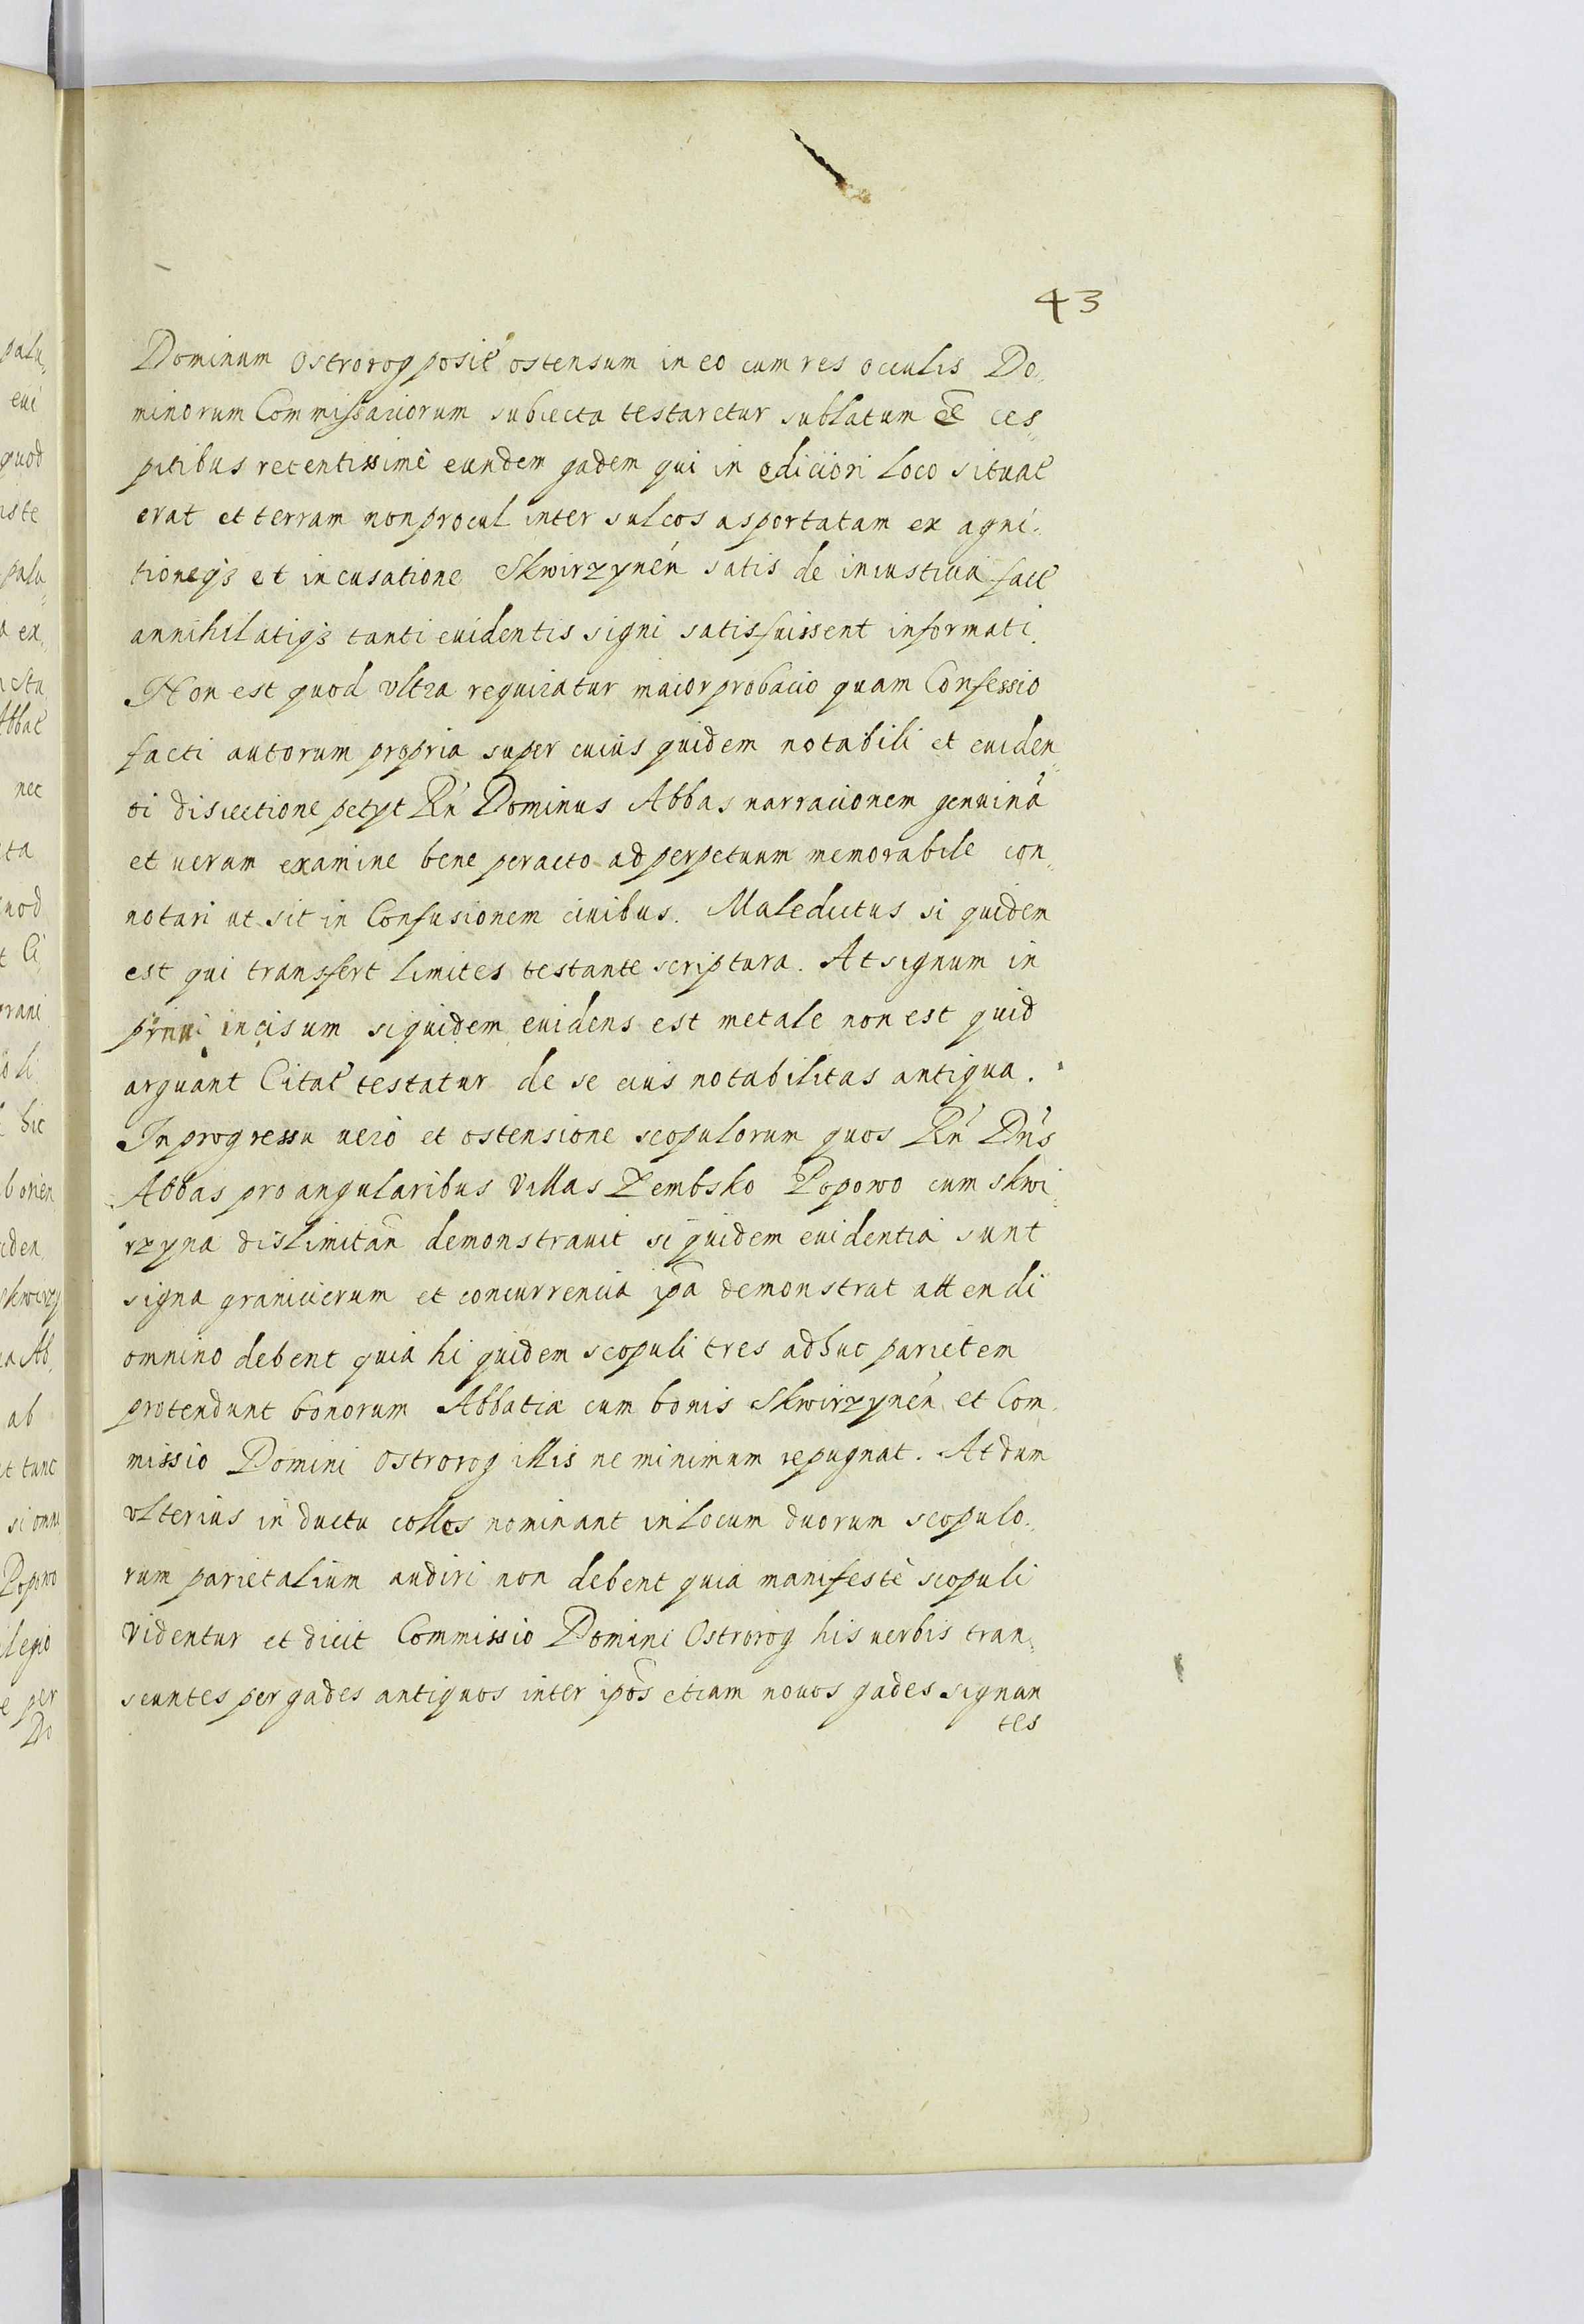 43
Dominum Ostrorog posit' ostensum in eo cum res occulis Do-
minorum Commissariorum subiecta testaretur sublatum eē ces-
pitibus recentissimè eundem gadem qui in ediciori loco situat'
erat et terram non procul inter sulcos asportatam ex agni-
tioneq3 et incusatione Skwirzynen' satis de iniustitia fact'
annihilatiq3 tanti euidentis signi satis fuissent informati.
Non est quod vltra requiratur maior probacio quam Confessio
facti autorum propria super cuius quidem notabili et euiden-
ti disiectione petyt Rn' Dominus Abbas narracionem genuinā
et ueram examine bene peracto ad perpetuum memorabile con-
notari ut sit in Confusionem ciuibus. Maledictus si quidem
est qui transfert limites testante scriptura. At signum in
pinu incisum siquidem euidens est metale non est quid
arguant Citat' testatur de se eius notabilitas antiqua.
In progressu uero et ostensione scopulorum quos Rn' Dn's
Abbas pro angularibus Villas Zembsko Popowo cum Skwi-
rzyna dislimitan̄ demonstrauit si quidem euidentia sunt
signa granicierum et concurrencia ip̄a demonstrat attendi
omnino debent quia hi quidem scopuli tres adhuc parietem
protendunt bonorum Abbatiæ cum bonis Skwirzynen' et Com-
missio Domini Ostrorog illis ne minimum repugnat. At dum
vlterius in ductu colles nominant in locum duorum scopulo-
rum parietalium audiri non debent quia manifestè scopuli
videntur et dicit Commissio Domini Ostrorog his uerbis tran-
seuntes per gades antiquos inter ip̄os etiam nouos gades signan
tes
palu-
eui
quod
iste
palu-
ex-
Abbat'
nec
ta
uod
t Ci
rani
oli
hic
b orien
iden
Skwirzy
a Ab-
ab
t tunc
si omni
Popowo
ilegio
e per
Do